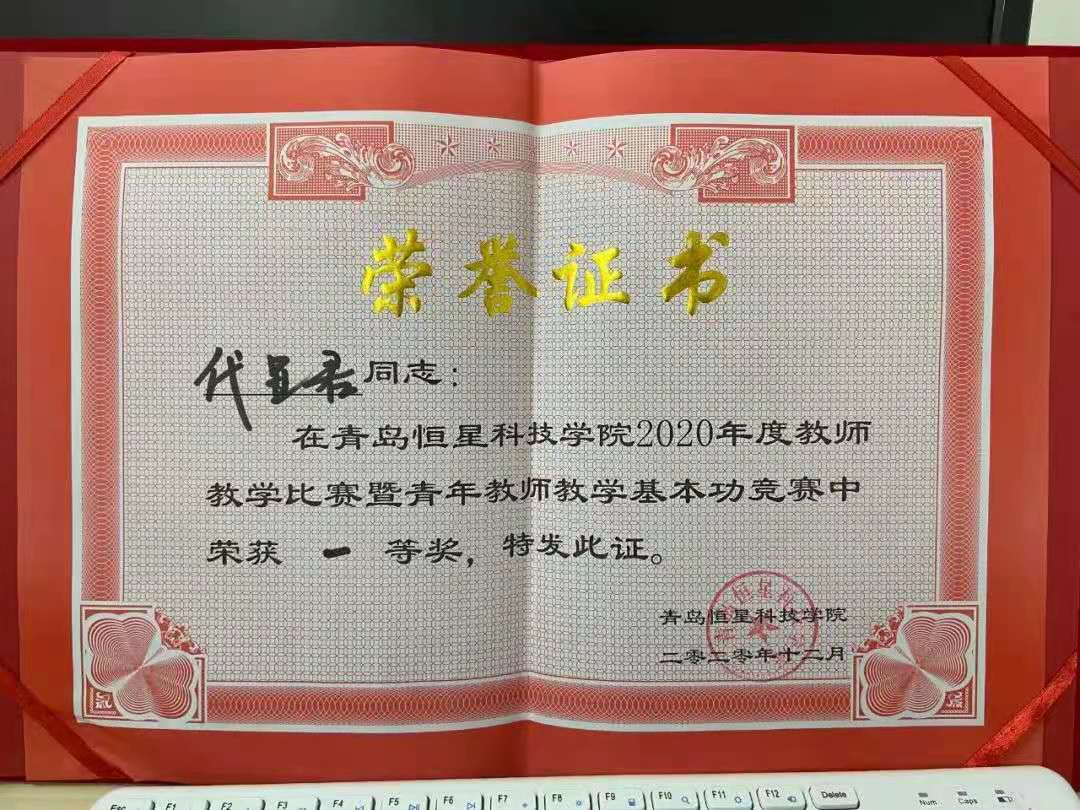 荣誉证书
代呈君同志：
在青岛恒星科技学院2020年度教师
教学比赛暨青年教师教学基本功竞赛中
荣获 一 等奖，特发此证。
青岛恒星科技学院
二零二零年十二月
Esc F1 F2 F3 F4 F5 F6 F7 F8 F9 F10 F11 F12 Delete Num Caps